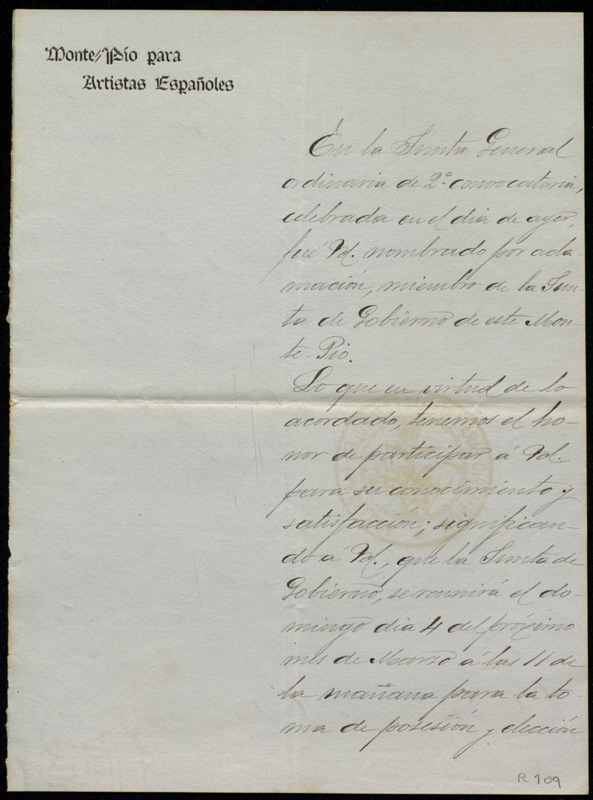 Monte-Pío para
Artistas Españoles
En la Junta General
ordinaria de 2ª convocatoria,
celebrada en el dia de ayer,
fué Vd. nombrado por acla-
mación, miembro de la Jun-
ta de Gobierno de este Mon-
te-Pio.
Lo que en virtud de lo
acordado, tenemos el ho-
nor de participar á Vd.
para su conocimiento y
satisfacción; significan-
do a Vd., que la Junta de
Gobierno, se reunirá el do-
mingo dia 4 del próximo
mes de Marzo á las 11 de
la mañana para la to-
ma de posesión y elección
R 109